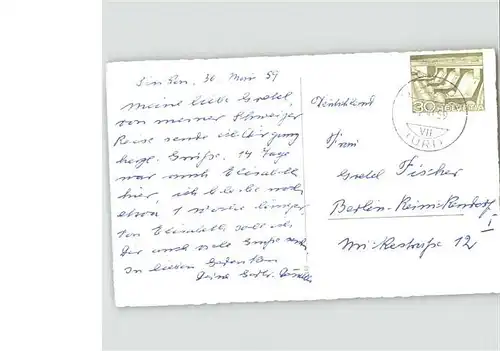 30 Mai 59
Meine liebe Gretel,
von meiner Schweizer
Reise sende ich Dir ganz
herzl. Grüße. 14 Tage
war auch Elisabeth
hier, ich bleibe noch
etwa 1 Woche länger.
Von Elisabeth soll ich
Dir auch viele Grüße
In lieben Gedanken
Deine
30 HELVETIA
VII
Deutschland
Gretel Fischer
Berlin-Reinickendorf
12